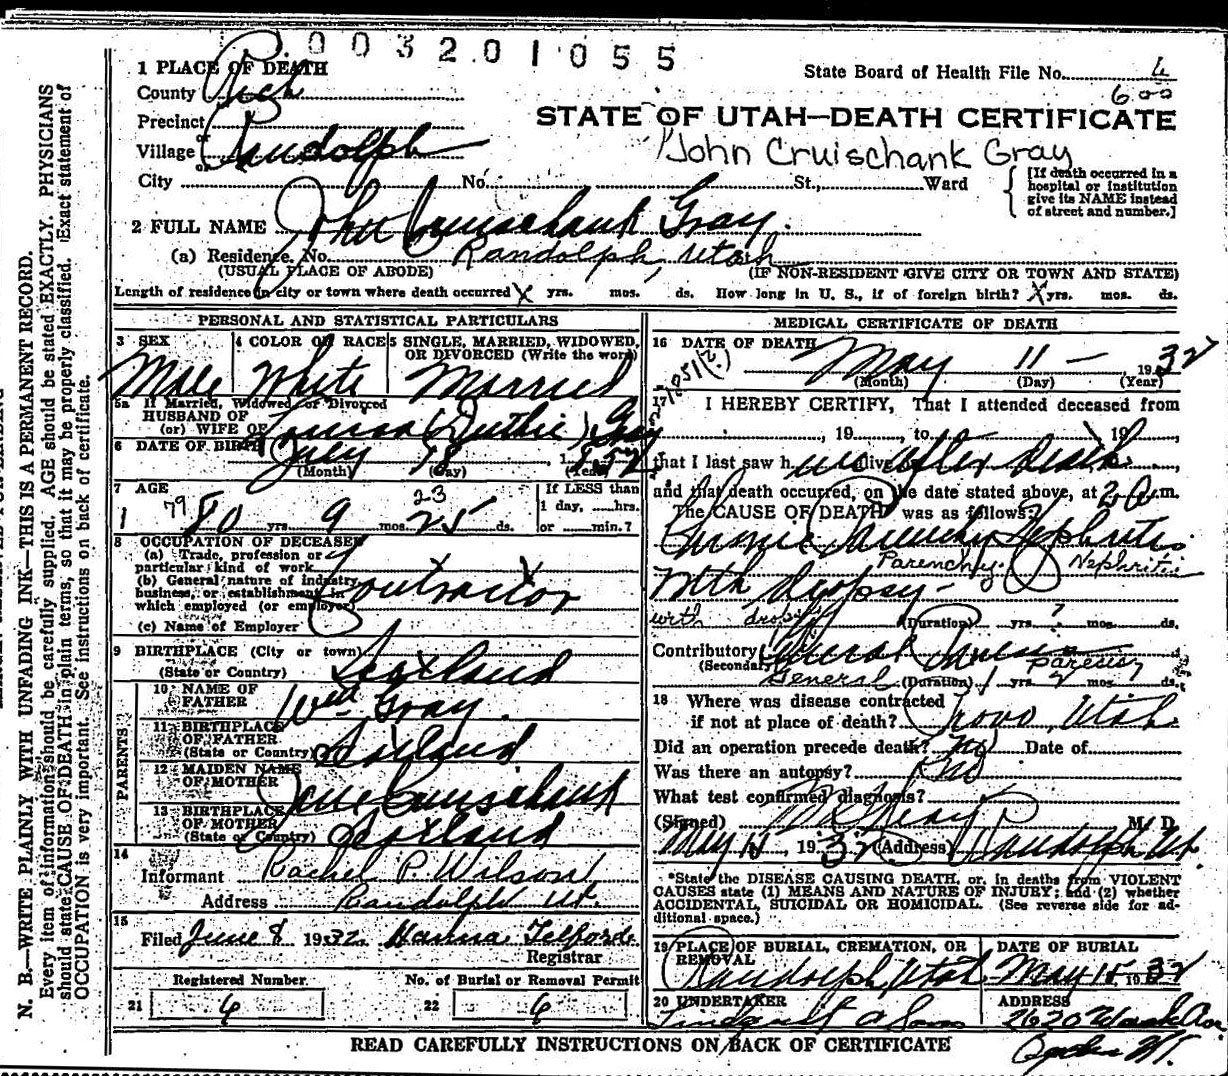 003201055
1 PLACE OF DEATH
State Board of Health File No. 6
County Rich
600
Precinct
STATE OF UTAH—DEATH CERTIFICATE
or
Village Randolph
John Cruischank Gray
or
City No. St., Ward
[If death occurred in a hospital or institution give its NAME instead of street and number.]
2 FULL NAME John Cruischank Gray.
(a) Residence. No. Randolph, Utah
(USUAL PLACE OF ABODE) (IF NON-RESIDENT GIVE CITY OR TOWN AND STATE)
Length of residence in city or town where death occurred X yrs. mos. ds. How long in U. S., if of foreign birth? X yrs. mos. ds.
PERSONAL AND STATISTICAL PARTICULARS
3 SEX
Male
4 COLOR OR RACE
White
5 SINGLE, MARRIED, WIDOWED, OR DIVORCED (Write the word)
Married
5a If Married, Widowed or Divorced
HUSBAND OF
(or) WIFE OF Louisa (Duthie) Gray
6 DATE OF BIRTH July 18, 1852
(Month) (Day) (Year)
7 AGE
79 23
80 yrs. 9 mos. 25 ds.
If LESS than
1 day, hrs.
or min.?
8 OCCUPATION OF DECEASED
(a) Trade, profession or
particular kind of work
(b) General nature of industry,
business, or establishment in
which employed (or employer)
Contractor
(c) Name of Employer
9 BIRTHPLACE (City or town)
(State or Country) Scotland
PARENTS
10 NAME OF
FATHER Wm Gray.
11 BIRTHPLACE
OF FATHER
(State or Country) Scotland
12 MAIDEN NAME
OF MOTHER Jane Cruischank
13 BIRTHPLACE
OF MOTHER
(State or Country) Scotland
14
Informant Rachel P. Wilson
Address Randolph Ut
15
Filed June 8 1932 Hanna Telford
Registrar
Registered Number. No. of Burial or Removal Permit
21 6 22 6
MEDICAL CERTIFICATE OF DEATH
16 DATE OF DEATH
May 11 — , 1932
(Month) (Day) (Year)
17 I HEREBY CERTIFY, That I attended deceased from
, 19 , to , 19 ,
that I last saw h alive after death ,
and that death occurred, on the date stated above, at 2 a m.
The CAUSE OF DEATH was as follows:
Chronic Parenchy. Nephritis.
Parenchy. Nephritis
With dropsy
with dropsy
(Duration) yrs. ? mos. ds.
Contributory
(Secondary) General paresis
(Duration) 1 yrs. 2 mos. ds.
18 Where was disease contracted
if not at place of death? Provo, Utah
Did an operation precede death? no Date of
Was there an autopsy? no
What test confirmed diagnosis?
(Signed) M. D.
May 15, 1932 (Address) Randolph Ut.
*State the DISEASE CAUSING DEATH, or, in deaths from VIOLENT
CAUSES state (1) MEANS AND NATURE OF INJURY; and (2) whether
ACCIDENTAL, SUICIDAL OR HOMICIDAL. (See reverse side for ad-
ditional space.)
19 PLACE OF BURIAL, CREMATION, OR REMOVAL
Randolph, Utah
DATE OF BURIAL
May 15 1932
20 UNDERTAKER
Lindquist & Sons
ADDRESS
2620 Wash Ave.
Ogden Ut.
READ CAREFULLY INSTRUCTIONS ON BACK OF CERTIFICATE
N. B.—WRITE PLAINLY WITH UNFADING INK—THIS IS A PERMANENT RECORD.
Every item of information should be carefully supplied. AGE should be stated EXACTLY. PHYSICIANS
should state CAUSE OF DEATH in plain terms, so that it may be properly classified. Exact statement of
OCCUPATION is very important. See instructions on back of certificate.